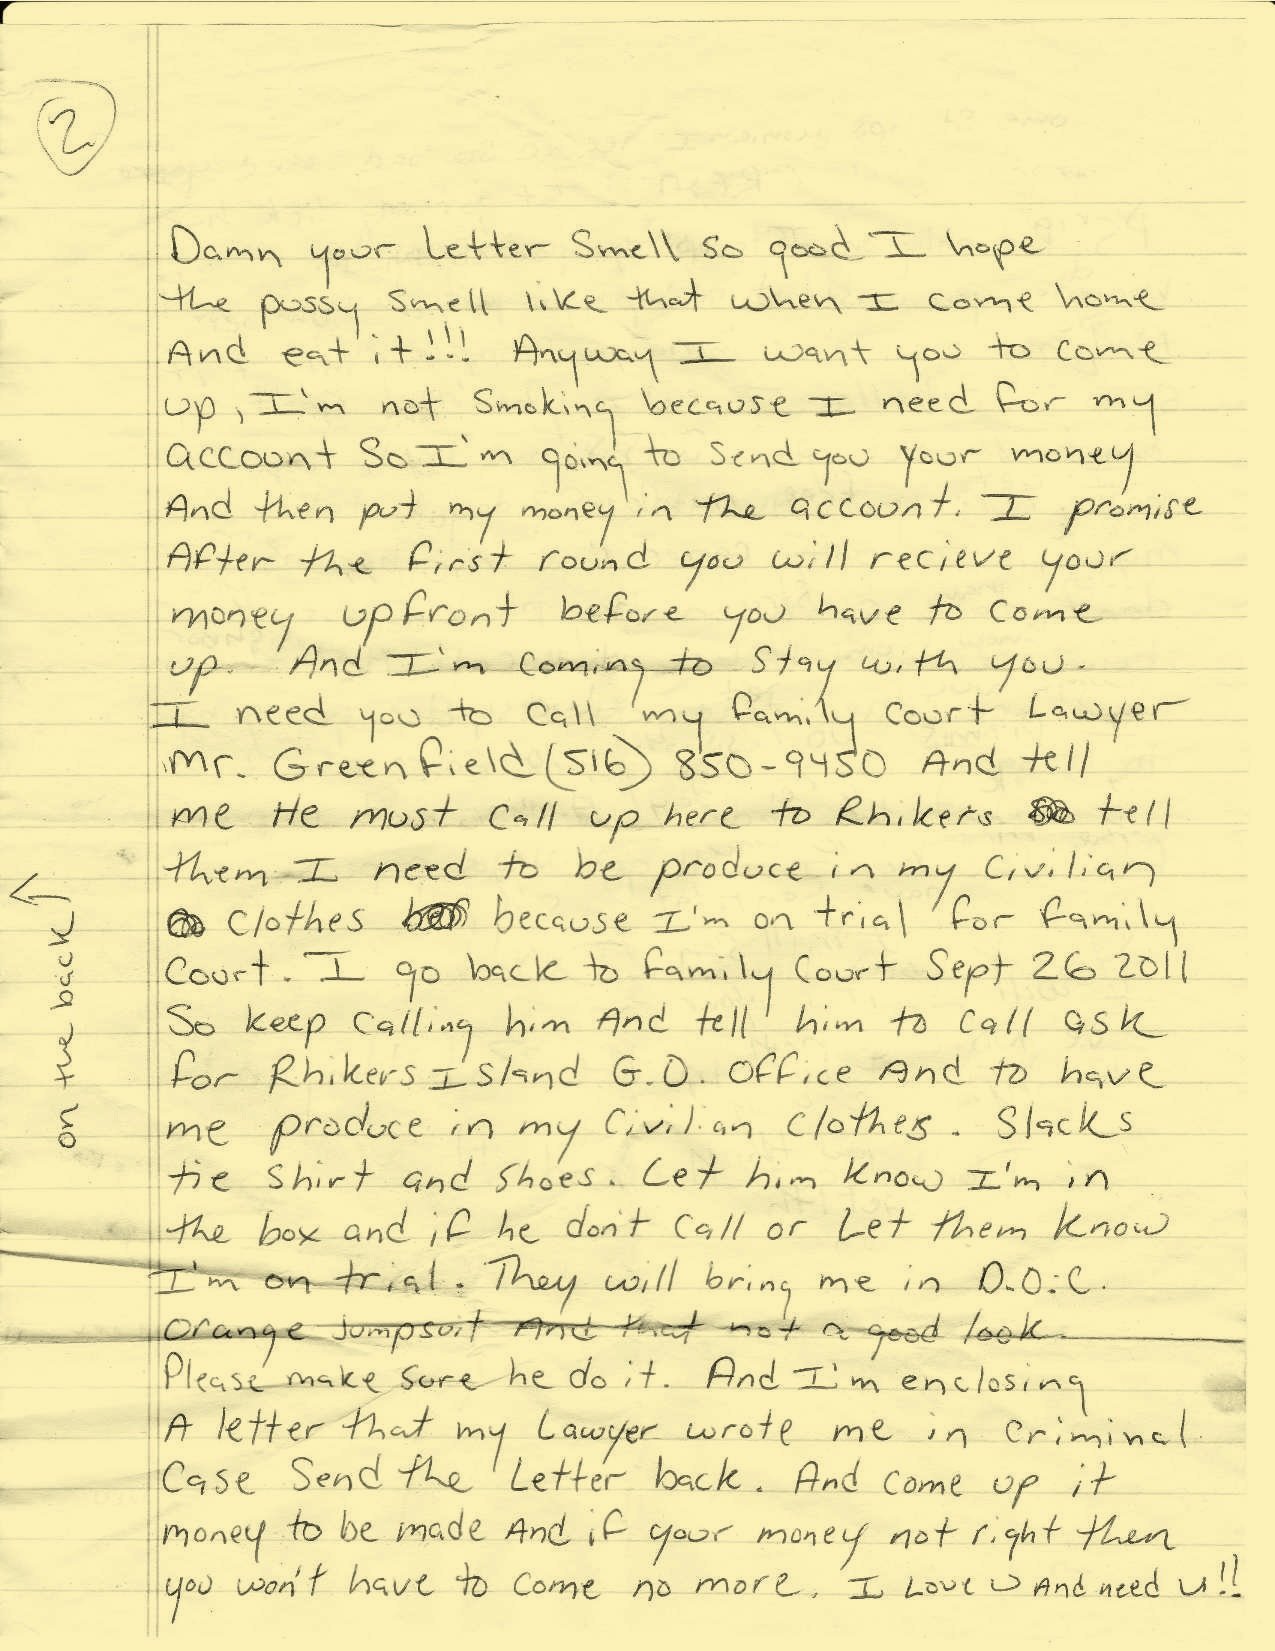 2
Damn your Letter Smell so good I hope
the pussy smell like that when I come home
And eat it!!! Anyway I want you to come
up, I'm not smoking because I need for my
account So I'm going to send you your money
And then put my money in the account. I promise
After the first round you will recieve your
money upfront before you have to come
up. And I'm coming to stay with you.
I need you to call my family court Lawyer
Mr. Greenfield (516) 850-9450 And tell
me He must call up here to Rhikers tell
them I need to be produce in my civilian
clothes because I'm on trial for family
Court. I go back to family Court Sept 26 2011
So keep calling him And tell him to call ask
for Rhikers Island G.O. Office And to have
me produce in my civilian clothes. Slacks
tie shirt and shoes. Let him know I'm in
the box and if he don't call or Let them know
I'm on trial. They will bring me in D.O.C.
Orange jumpsuit And that not a good look.
Please make sure he do it. And I'm enclosing
A letter that my Lawyer wrote me in criminal
Case Send the Letter back. And come up it
money to be made And if your money not right then
you won't have to come no more. I Love U And need U!!
on the back →